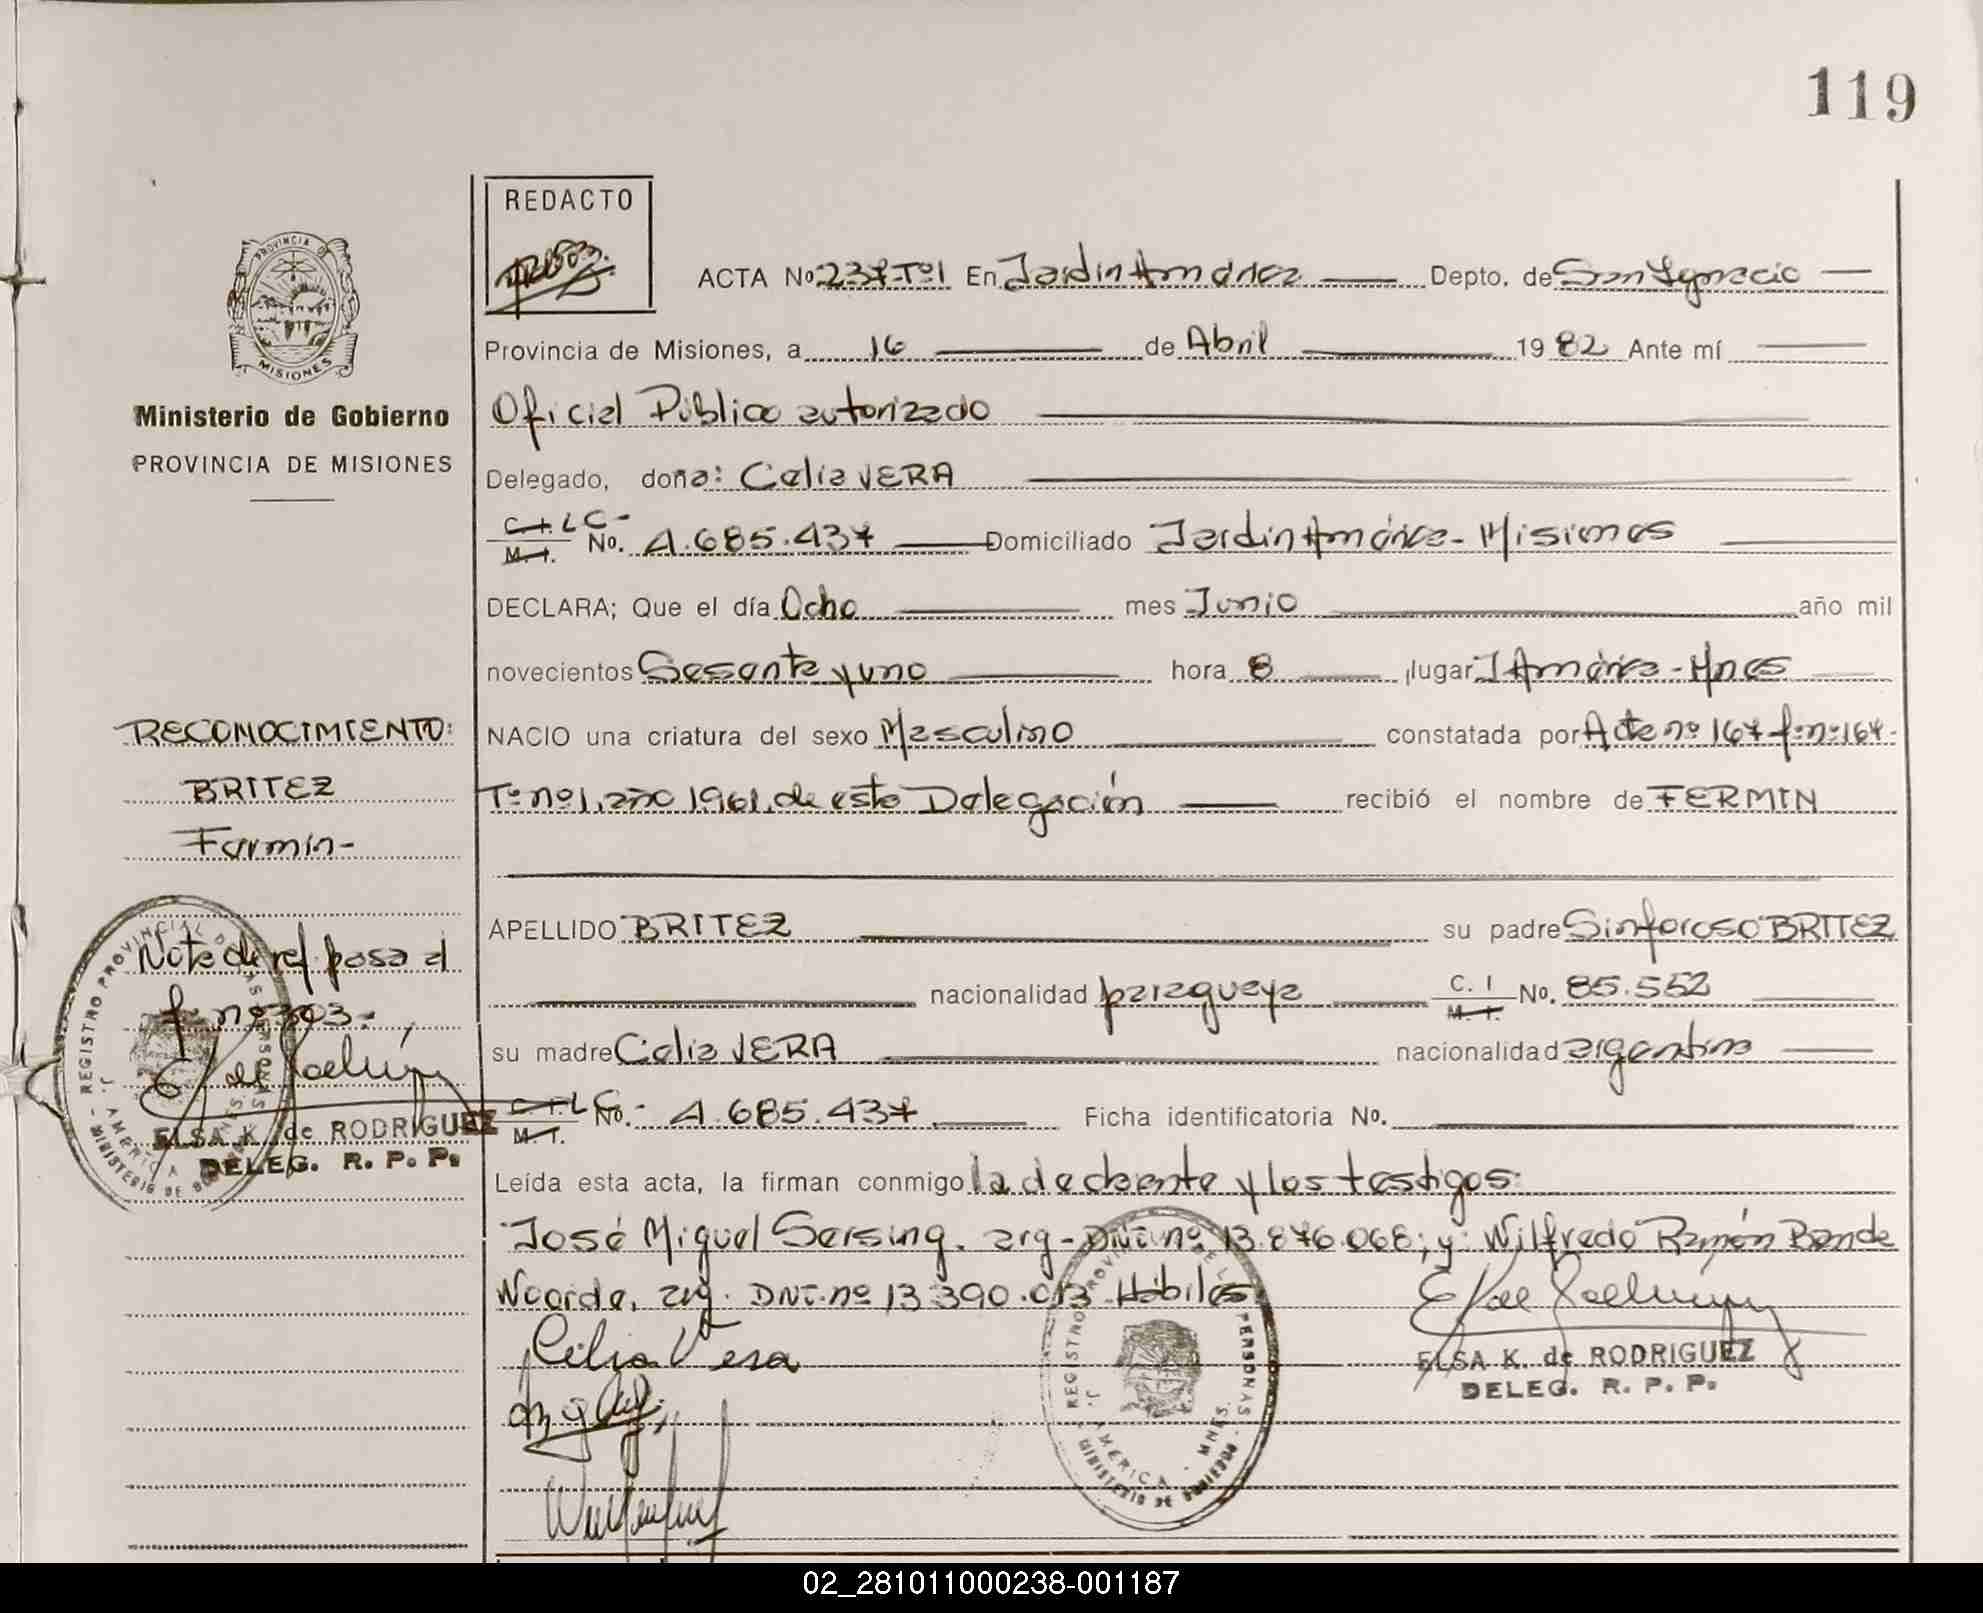 119
REDACTO
PROVINCIA DE
MISIONES
Ministerio de Gobierno
PROVINCIA DE MISIONES
ACTA No 237-Tº1 En Jardín América Depto. de San Ignacio
Provincia de Misiones, a 16 de Abril 1982 Ante mí
Oficial Público autorizado
Delegado, doña: Celia VERA
C.I. L C- M.I. No. 4.685.437 Domiciliado Jardín América - Misiones
DECLARA; Que el día Ocho mes Junio año mil
novecientos Sesenta y uno hora 8 lugar J América - Mnes
NACIO una criatura del sexo Masculino constatada por Acta nº 167 f:nº:167-
Tº nº 1, año 1961, de esta Delegación recibió el nombre de FERMIN
APELLIDO BRITEZ su padre Sinforoso BRITEZ
nacionalidad paraguaya C. I M. I. No. 85.552
su madre Celia VERA nacionalidad argentina
C.I. L C- M.I. No. 4.685.437 Ficha identificatoria No.
Leída esta acta, la firman conmigo la declarante y los testigos:
José Miguel Sersing. arg - DNI. nº 13.876.068; y: Wilfredo Ramón Bande
Noorde, arg. DNI. nº 13.390.013 - Hábiles
Celia Vera
ELSA K. de RODRIGUEZ
DELEG. R. P. P.
REGISTRO PROVINCIAL DE LAS PERSONAS
J. AMERICA - MNES.
MINISTERIO DE GOBIERNO
RECONOCIMIENTO:
BRITEZ
Fermín-
Nota de ref pasa al
f. nº 303.-
ELSA K. de RODRIGUEZ
DELEG. R. P. P.
REGISTRO PROVINCIAL DE LAS PERSONAS
J. AMERICA MNES.
MINISTERIO DE GOBIERNO
02_281011000238-001187